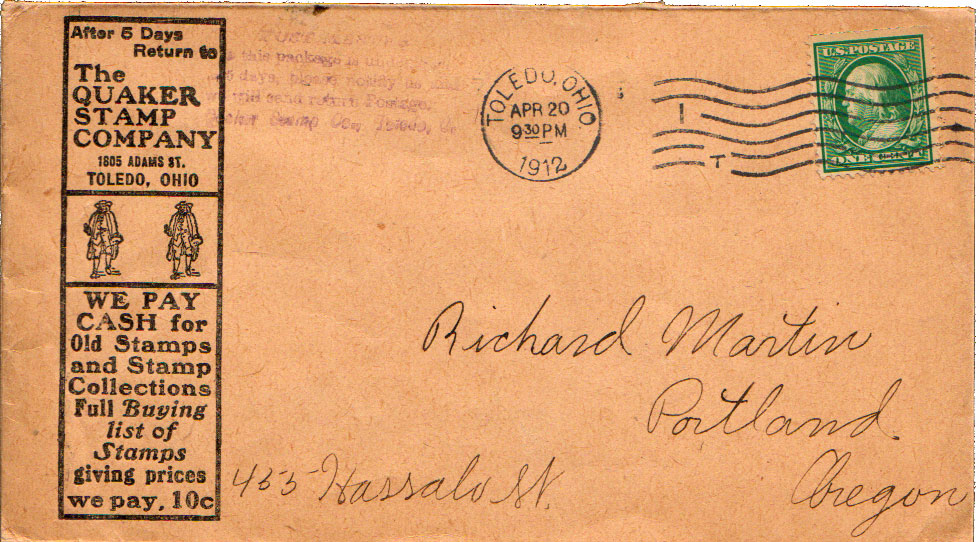 After 5 Days
Return to
The
QUAKER
STAMP
COMPANY
1805 ADAMS ST.
TOLEDO, OHIO
WE PAY
CASH for
Old Stamps
and Stamp
Collections
Full Buying
list of
Stamps
giving prices
we pay, 10c
this package is
5 days, please notify
will send return Postage.
Stamp Co., Toledo, O.
TOLEDO, OHIO.
APR 20
9 30 PM
1912
1
T
U.S. POSTAGE
ONE CENT
Richard Martin
Portland
455 Hassalo St.
Oregon